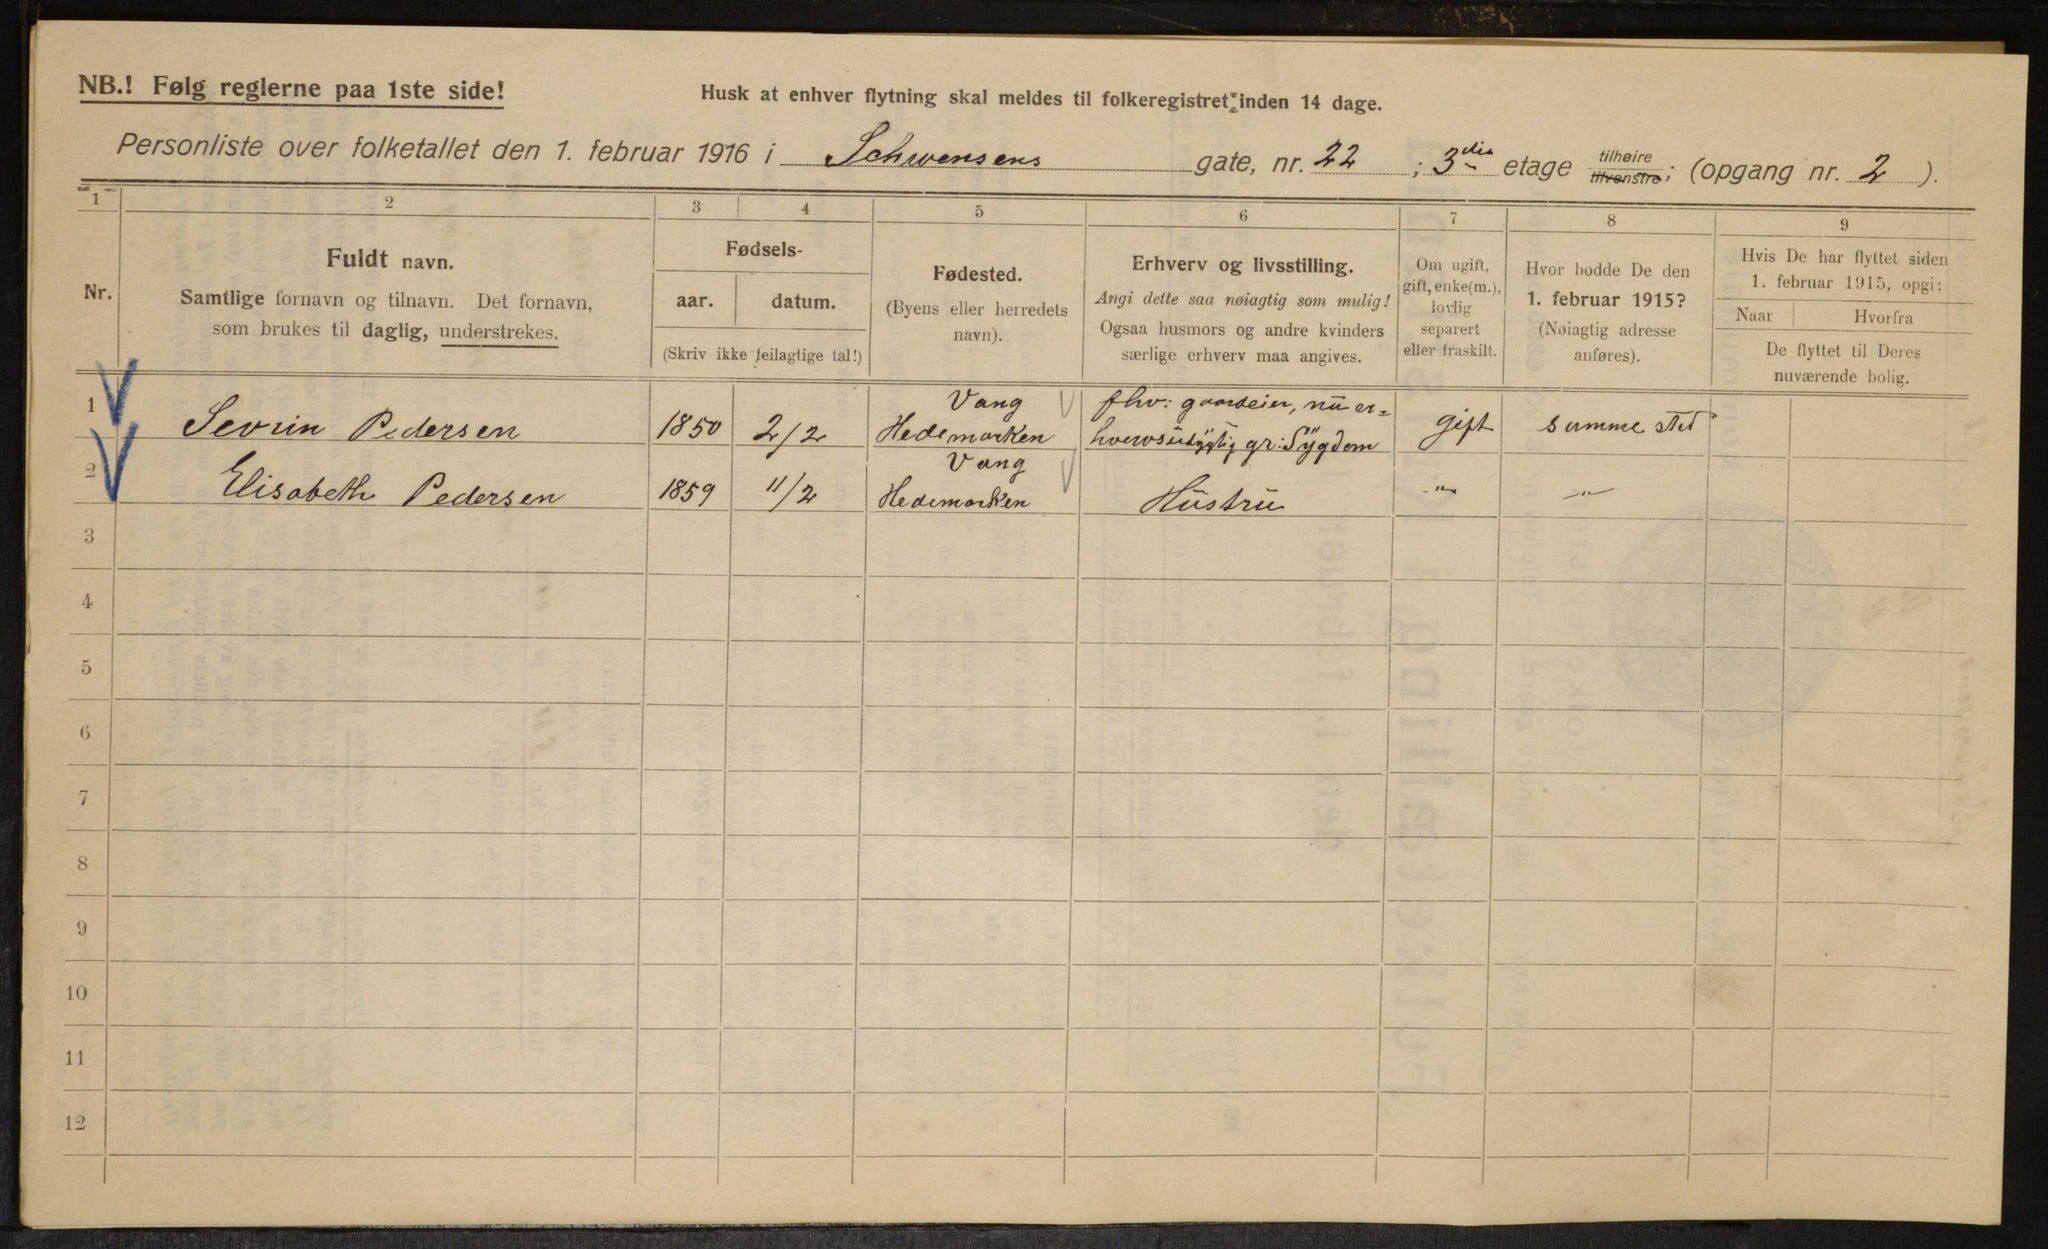 NB.! Følg reglerne paa 1ste side!
Husk at enhver flytning skal meldes til folkeregistret inden 14 dage.
Personliste over folketallet den 1. februar 1916 i Schwensens gate, nr. 22 ; 3die etage tilhøire tilvenstre; (opgang nr. 2 ).
1 2 3 4 5 6 7 8 9
Nr.
Fuldt navn.
Samtlige fornavn og tilnavn. Det fornavn,
som brukes til daglig, understrekes.
Fødsels-
aar. datum.
(Skriv ikke feilagtige tal!)
Fødested.
(Byens eller herredets
navn).
Erhverv og livsstilling.
Angi dette saa nøiagtig som mulig!
Ogsaa husmors og andre kvinders
særlige erhverv maa angives.
Om ugift,
gift, enke(m.),
lovlig
separert
eller fraskilt.
Hvor bodde De den
1. februar 1915?
(Nøiagtig adresse
anføres).
Hvis De har flyttet siden
1. februar 1915, opgi:
Naar Hvorfra
De flyttet til Deres
nuværende bolig.
1 Vang fhv: gaardeier, nu er-
Sevrin Pedersen 1850 2/2 Hedemarken hvervsudygtig gr: Sygdom gift samme sted
2 Vang
Elisabeth Pedersen 1859 11/2 Hedemarken Hustru " "
3
4
5
6
7
8
9
10
11
12